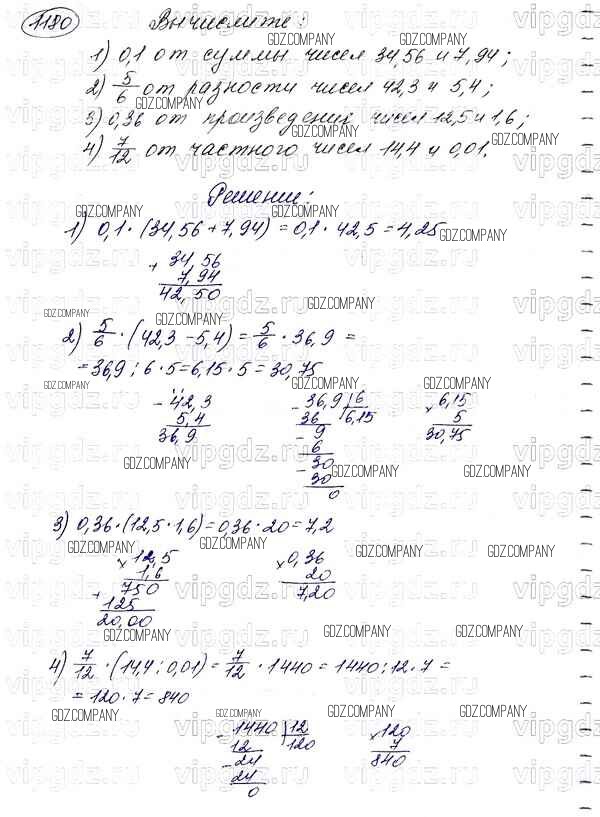 1180 Вычислите:
1) 0,1 от суммы чисел 34,56 и 7,94;
2) 5/6 от разности чисел 42,3 и 5,4;
3) 0,36 от произведения чисел 12,5 и 1,6;
4) 7/12 от частного чисел 14,4 и 0,01.
Решение:
1) 0,1 · (34,56 + 7,94) = 0,1 · 42,5 = 4,25
+ 34,56
7,94
42,50
2) 5/6 · (42,3 – 5,4) = 5/6 · 36,9 =
= 36,9 : 6 · 5 = 6,15 · 5 = 30,75
- 42,3
5,4
36,9
- 36,9 | 6
36 | 6,15
- 9
6
- 30
30
0
× 6,15
5
30,75
3) 0,36 · (12,5 · 1,6) = 0,36 · 20 = 7,2
× 12,5
1,6
750
+ 125
20,00
× 0,36
20
7,20
4) 7/12 · (14,4 : 0,01) = 7/12 · 1440 = 1440 : 12 · 7 =
= 120 · 7 = 840
- 1440 | 12
12 | 120
- 24
24
0
× 120
7
840
GDZ.COMPANY
vipgdz.ru